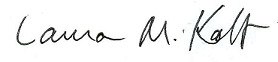 Laura M. Kalt